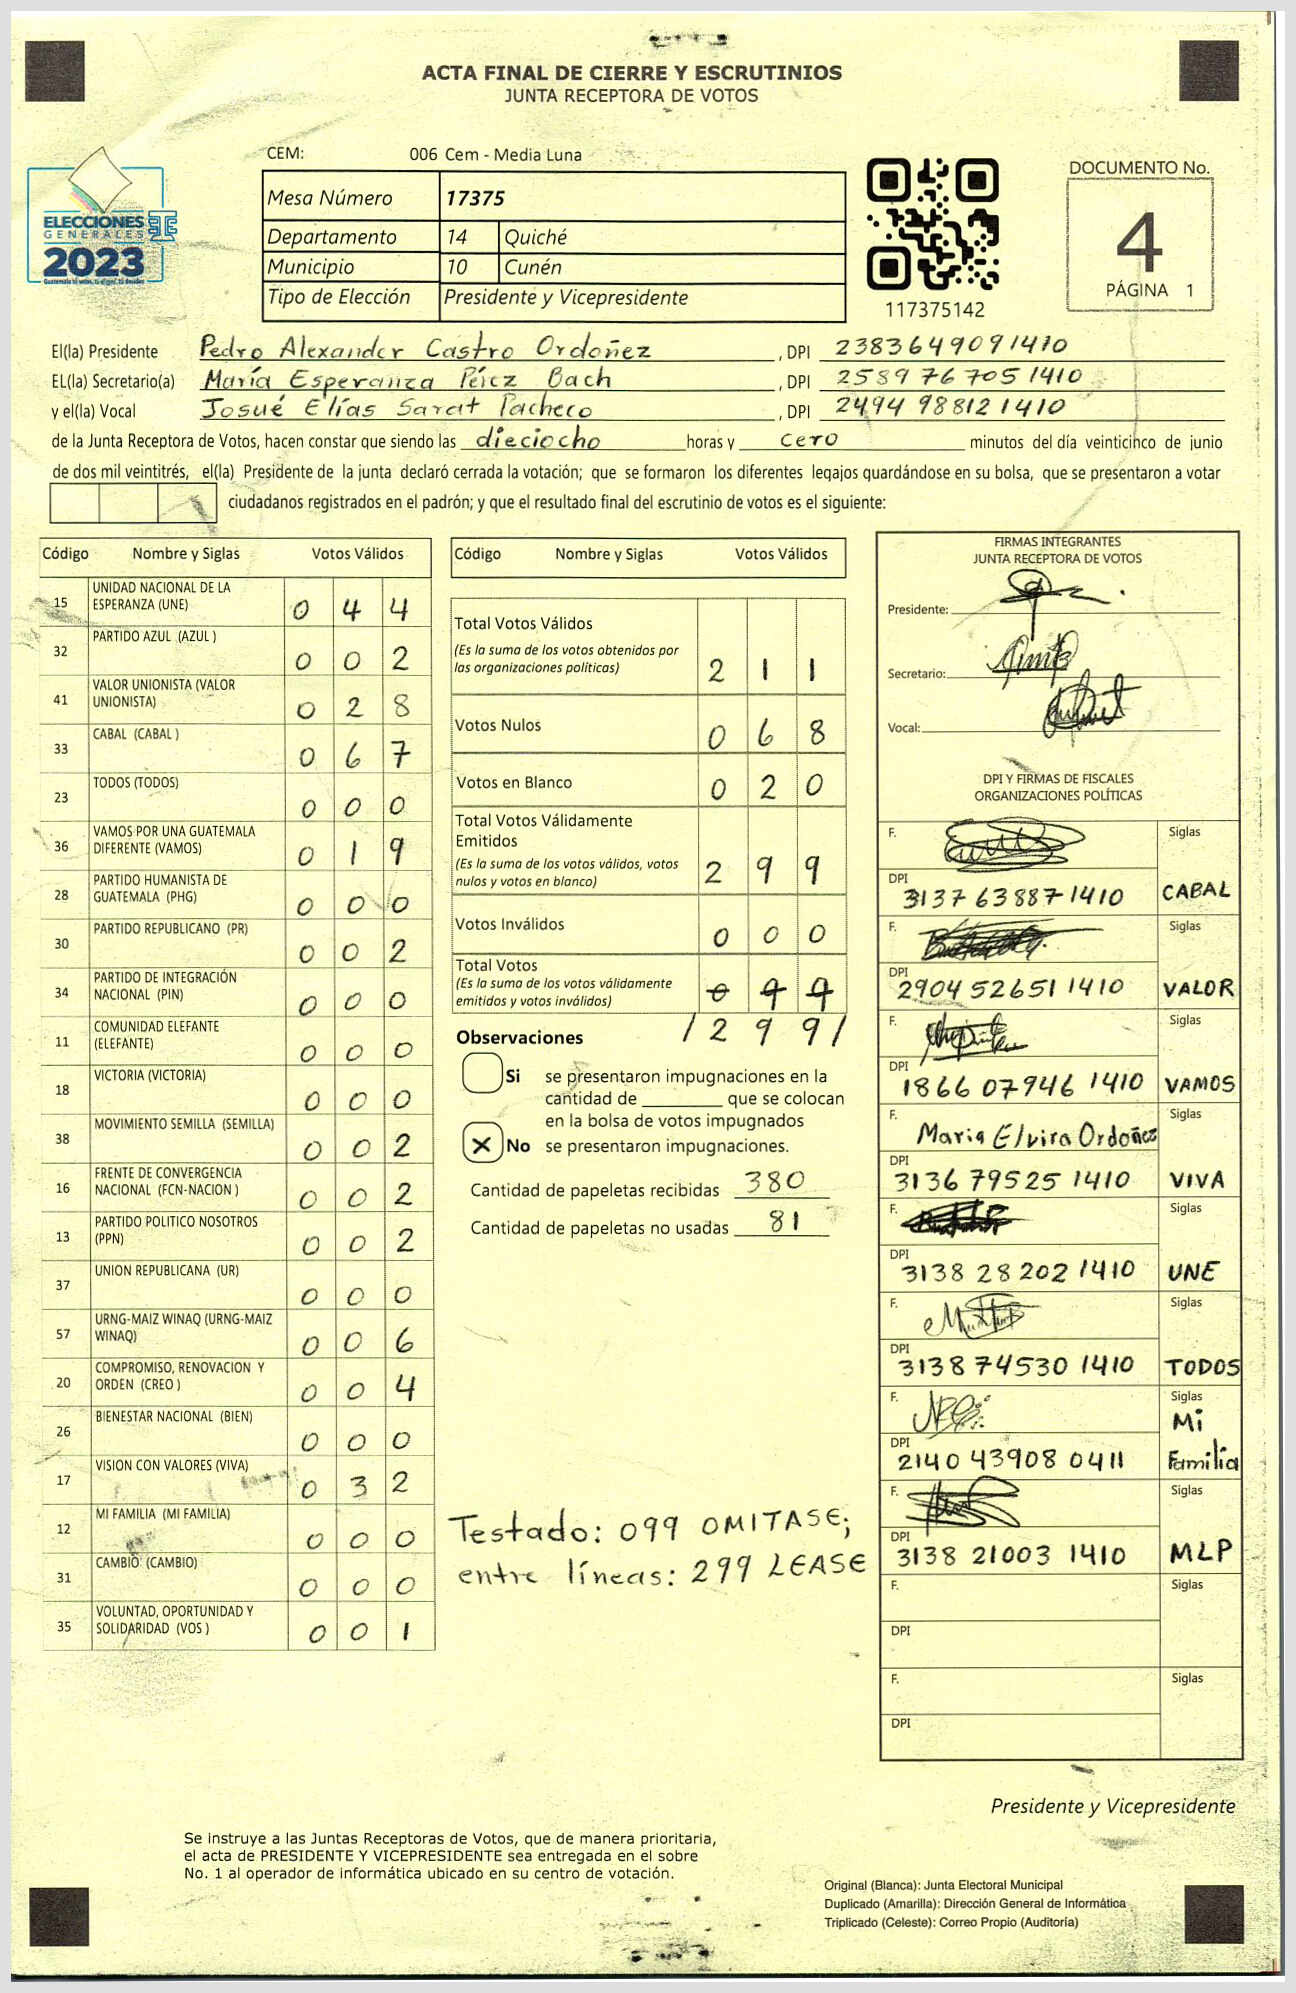 ACTA FINAL DE CIERRE Y ESCRUTINIOS
JUNTA RECEPTORA DE VOTOS
CEM: 006 Cem - Media Luna
ELECCIONES
GENERALES
2023
Mesa Número 17375
Departamento 14 Quiché
Municipio 10 Cunén
Tipo de Elección Presidente y Vicepresidente
117375142
DOCUMENTO No.
4
PÁGINA 1
El(la) Presidente Pedro Alexander Castro Ordoñez , DPI 2383649091410
EL(la) Secretario(a) María Esperanza Pérez Bach , DPI 2589 76705 1410
y el(la) Vocal Josué Elías Sarat Pacheco , DPI 2494 98812 1410
de la Junta Receptora de Votos, hacen constar que siendo las dieciocho horas y cero minutos del día veinticinco de junio
de dos mil veintitrés, el(la) Presidente de la junta declaró cerrada la votación; que se formaron los diferentes legajos guardándose en su bolsa, que se presentaron a votar
ciudadanos registrados en el padrón; y que el resultado final del escrutinio de votos es el siguiente:
Código Nombre y Siglas Votos Válidos
15 UNIDAD NACIONAL DE LA
ESPERANZA (UNE) 0 4 4
32 PARTIDO AZUL (AZUL ) 0 0 2
41 VALOR UNIONISTA (VALOR
UNIONISTA) 0 2 8
33 CABAL (CABAL ) 0 6 7
23 TODOS (TODOS) 0 0 0
36 VAMOS POR UNA GUATEMALA
DIFERENTE (VAMOS) 0 1 9
28 PARTIDO HUMANISTA DE
GUATEMALA (PHG) 0 0 0
30 PARTIDO REPUBLICANO (PR) 0 0 2
34 PARTIDO DE INTEGRACIÓN
NACIONAL (PIN) 0 0 0
11 COMUNIDAD ELEFANTE
(ELEFANTE) 0 0 0
18 VICTORIA (VICTORIA) 0 0 0
38 MOVIMIENTO SEMILLA (SEMILLA) 0 0 2
16 FRENTE DE CONVERGENCIA
NACIONAL (FCN-NACION ) 0 0 2
13 PARTIDO POLITICO NOSOTROS
(PPN) 0 0 2
37 UNION REPUBLICANA (UR) 0 0 0
57 URNG-MAIZ WINAQ (URNG-MAIZ
WINAQ) 0 0 6
20 COMPROMISO, RENOVACION Y
ORDEN (CREO ) 0 0 4
26 BIENESTAR NACIONAL (BIEN) 0 0 0
17 VISION CON VALORES (VIVA) 0 3 2
12 MI FAMILIA (MI FAMILIA) 0 0 0
31 CAMBIO (CAMBIO) 0 0 0
35 VOLUNTAD, OPORTUNIDAD Y
SOLIDARIDAD (VOS ) 0 0 1
Código Nombre y Siglas Votos Válidos
Total Votos Válidos
(Es la suma de los votos obtenidos por
las organizaciones políticas) 2 1 1
Votos Nulos 0 6 8
Votos en Blanco 0 2 0
Total Votos Válidamente
Emitidos
(Es la suma de los votos válidos, votos
nulos y votos en blanco) 2 9 9
Votos Inválidos 0 0 0
Total Votos
(Es la suma de los votos válidamente
emitidos y votos inválidos) 0 9 9
/ 2 9 9 /
Observaciones
Si se presentaron impugnaciones en la
cantidad de que se colocan
en la bolsa de votos impugnados
X No se presentaron impugnaciones.
Cantidad de papeletas recibidas 380
Cantidad de papeletas no usadas 81
Testado: 099 OMITASE;
entre líneas: 299 LEASE
FIRMAS INTEGRANTES
JUNTA RECEPTORA DE VOTOS
Presidente:
Secretario:
Vocal:
DPI Y FIRMAS DE FISCALES
ORGANIZACIONES POLÍTICAS
F. Siglas
DPI
3137 63887 1410 CABAL
F. Siglas
DPI
2904 52651 1410 VALOR
F. Siglas
DPI
1866 07946 1410 VAMOS
F. Maria Elvira Ordoñez Siglas
DPI
3136 79525 1410 VIVA
F. Siglas
DPI
3138 28202 1410 UNE
F. Siglas
DPI
3138 74530 1410 TODOS
F. Siglas
Mi
DPI
2140 43908 0411 Familia
F. Siglas
DPI
3138 21003 1410 MLP
F. Siglas
DPI
F. Siglas
DPI
Presidente y Vicepresidente
Se instruye a las Juntas Receptoras de Votos, que de manera prioritaria,
el acta de PRESIDENTE Y VICEPRESIDENTE sea entregada en el sobre
No. 1 al operador de informática ubicado en su centro de votación.
Original (Blanca): Junta Electoral Municipal
Duplicado (Amarilla): Dirección General de Informática
Triplicado (Celeste): Correo Propio (Auditoría)